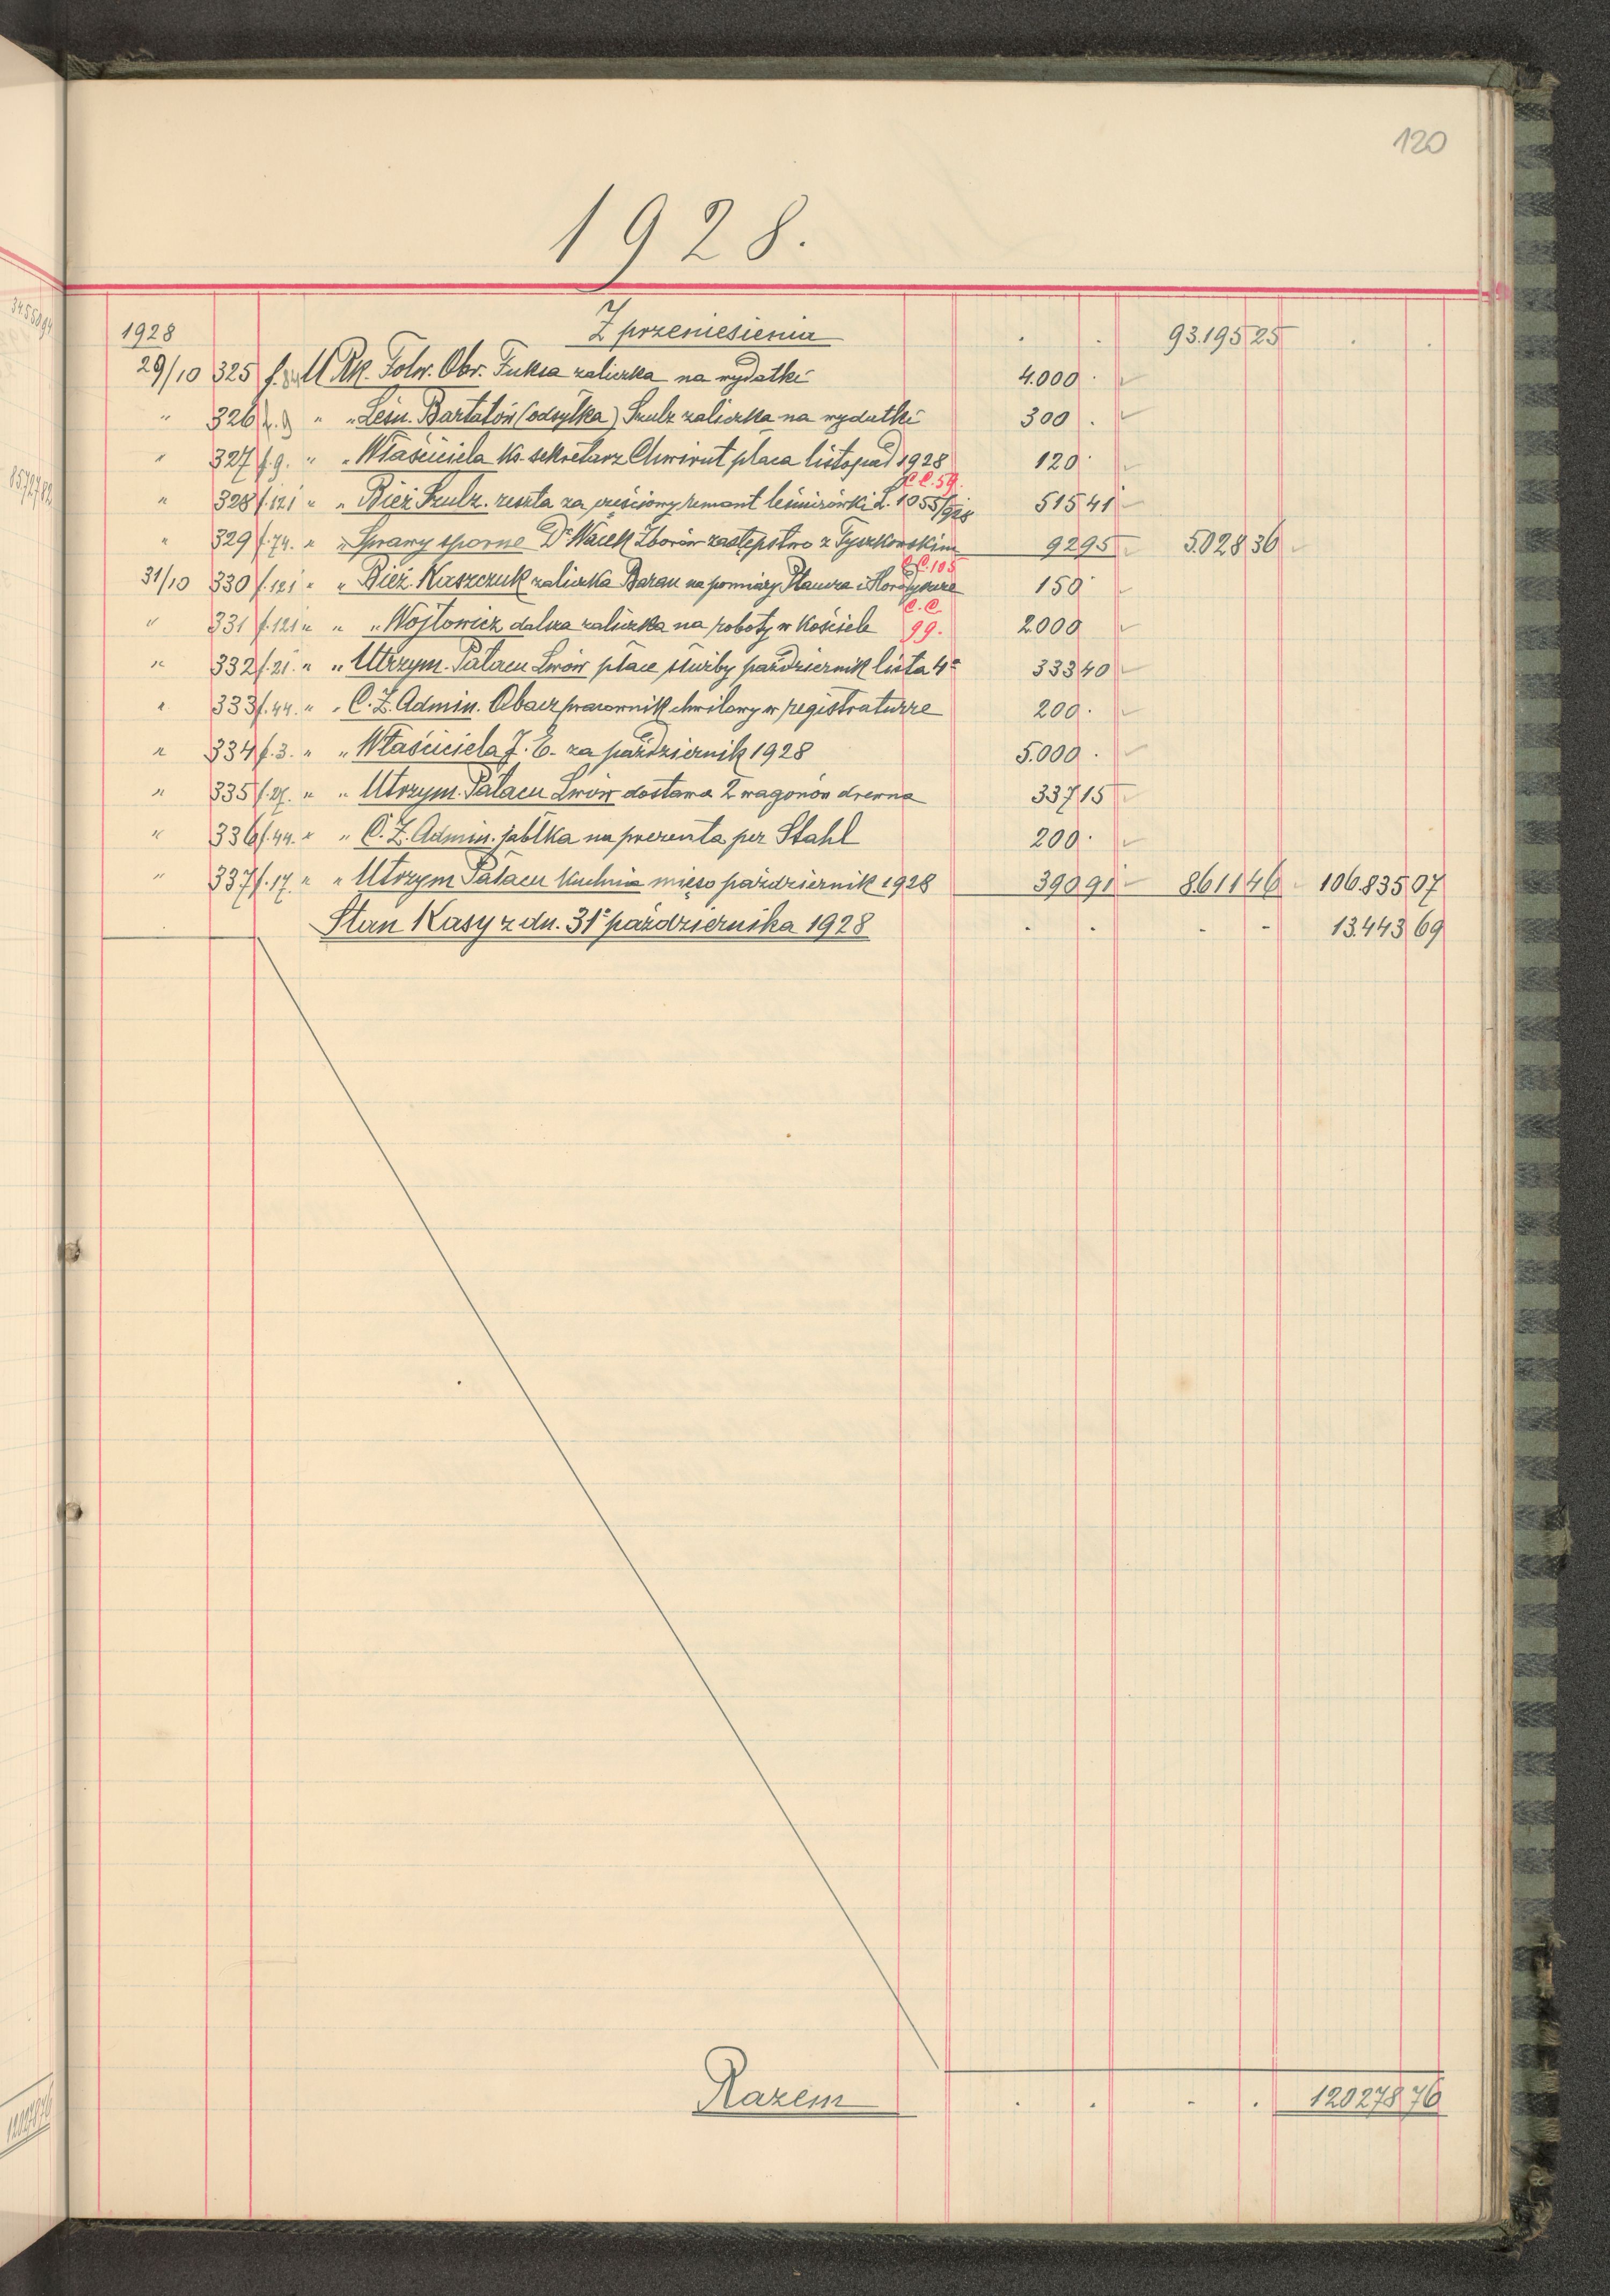 120
1928.
1928 Z przeniesienia . . 93.195 25 . .
29/10 325 f. M Rk. Folw. Obr. Fuksa zaliczka na wydatki 4.000 .
" 326 f. 9 " " Leśn. Bartatów (odsyłka) Szulz zaliczka na wydatki 300 .
" 327 f. 9. " " Właściciela Ks. sekretarz Chwirut płaca listopad 1928 120 .
C.C. 59.
" 328 f. 121 " " Bież. Szulz. reszta za remont leśniczówki L. 1055/928 515 41
" 329 f. 74. " " Sprawy sporne Dr Wacek Zborów zastępstwo z Tyszkowskim 92 95 5.028 36
C.C. 105
31/10 330 f. 121 " " Bież. Kaszczuk zaliczka Baran na pomiary i 150 .
C.C.
" 331 f. 121 " " " Wojtowicz dalsza zaliczka na roboty w Kościele 99. 2000
" 332 f. 21. " " Utrzym. Pałacu Lwów płace służby październik lista 4a 333 40
" 333 f. 44. " " C. Z. Admin. pracownik chwilowy w registraturze 200 .
" 334 f. 3. " " Właściciela J. E. za październik 1928 5.000 .
" 335 f. 27. " " Utrzym. Pałacu Lwów dostawa 2 wagonów drewna 337 15
" 336 f. 44. " " C. Z. Admin. jabłka na prezenta per Stahl 200 .
" 337 f. 17. " " Utrzym Pałacu Kuchnia mięso październik 1928 390 91 8.611 46 106.835 07
Stan Kasy z dn. 31o października 1928 . . - - 13.443 69
Razem . . - . 120278 76